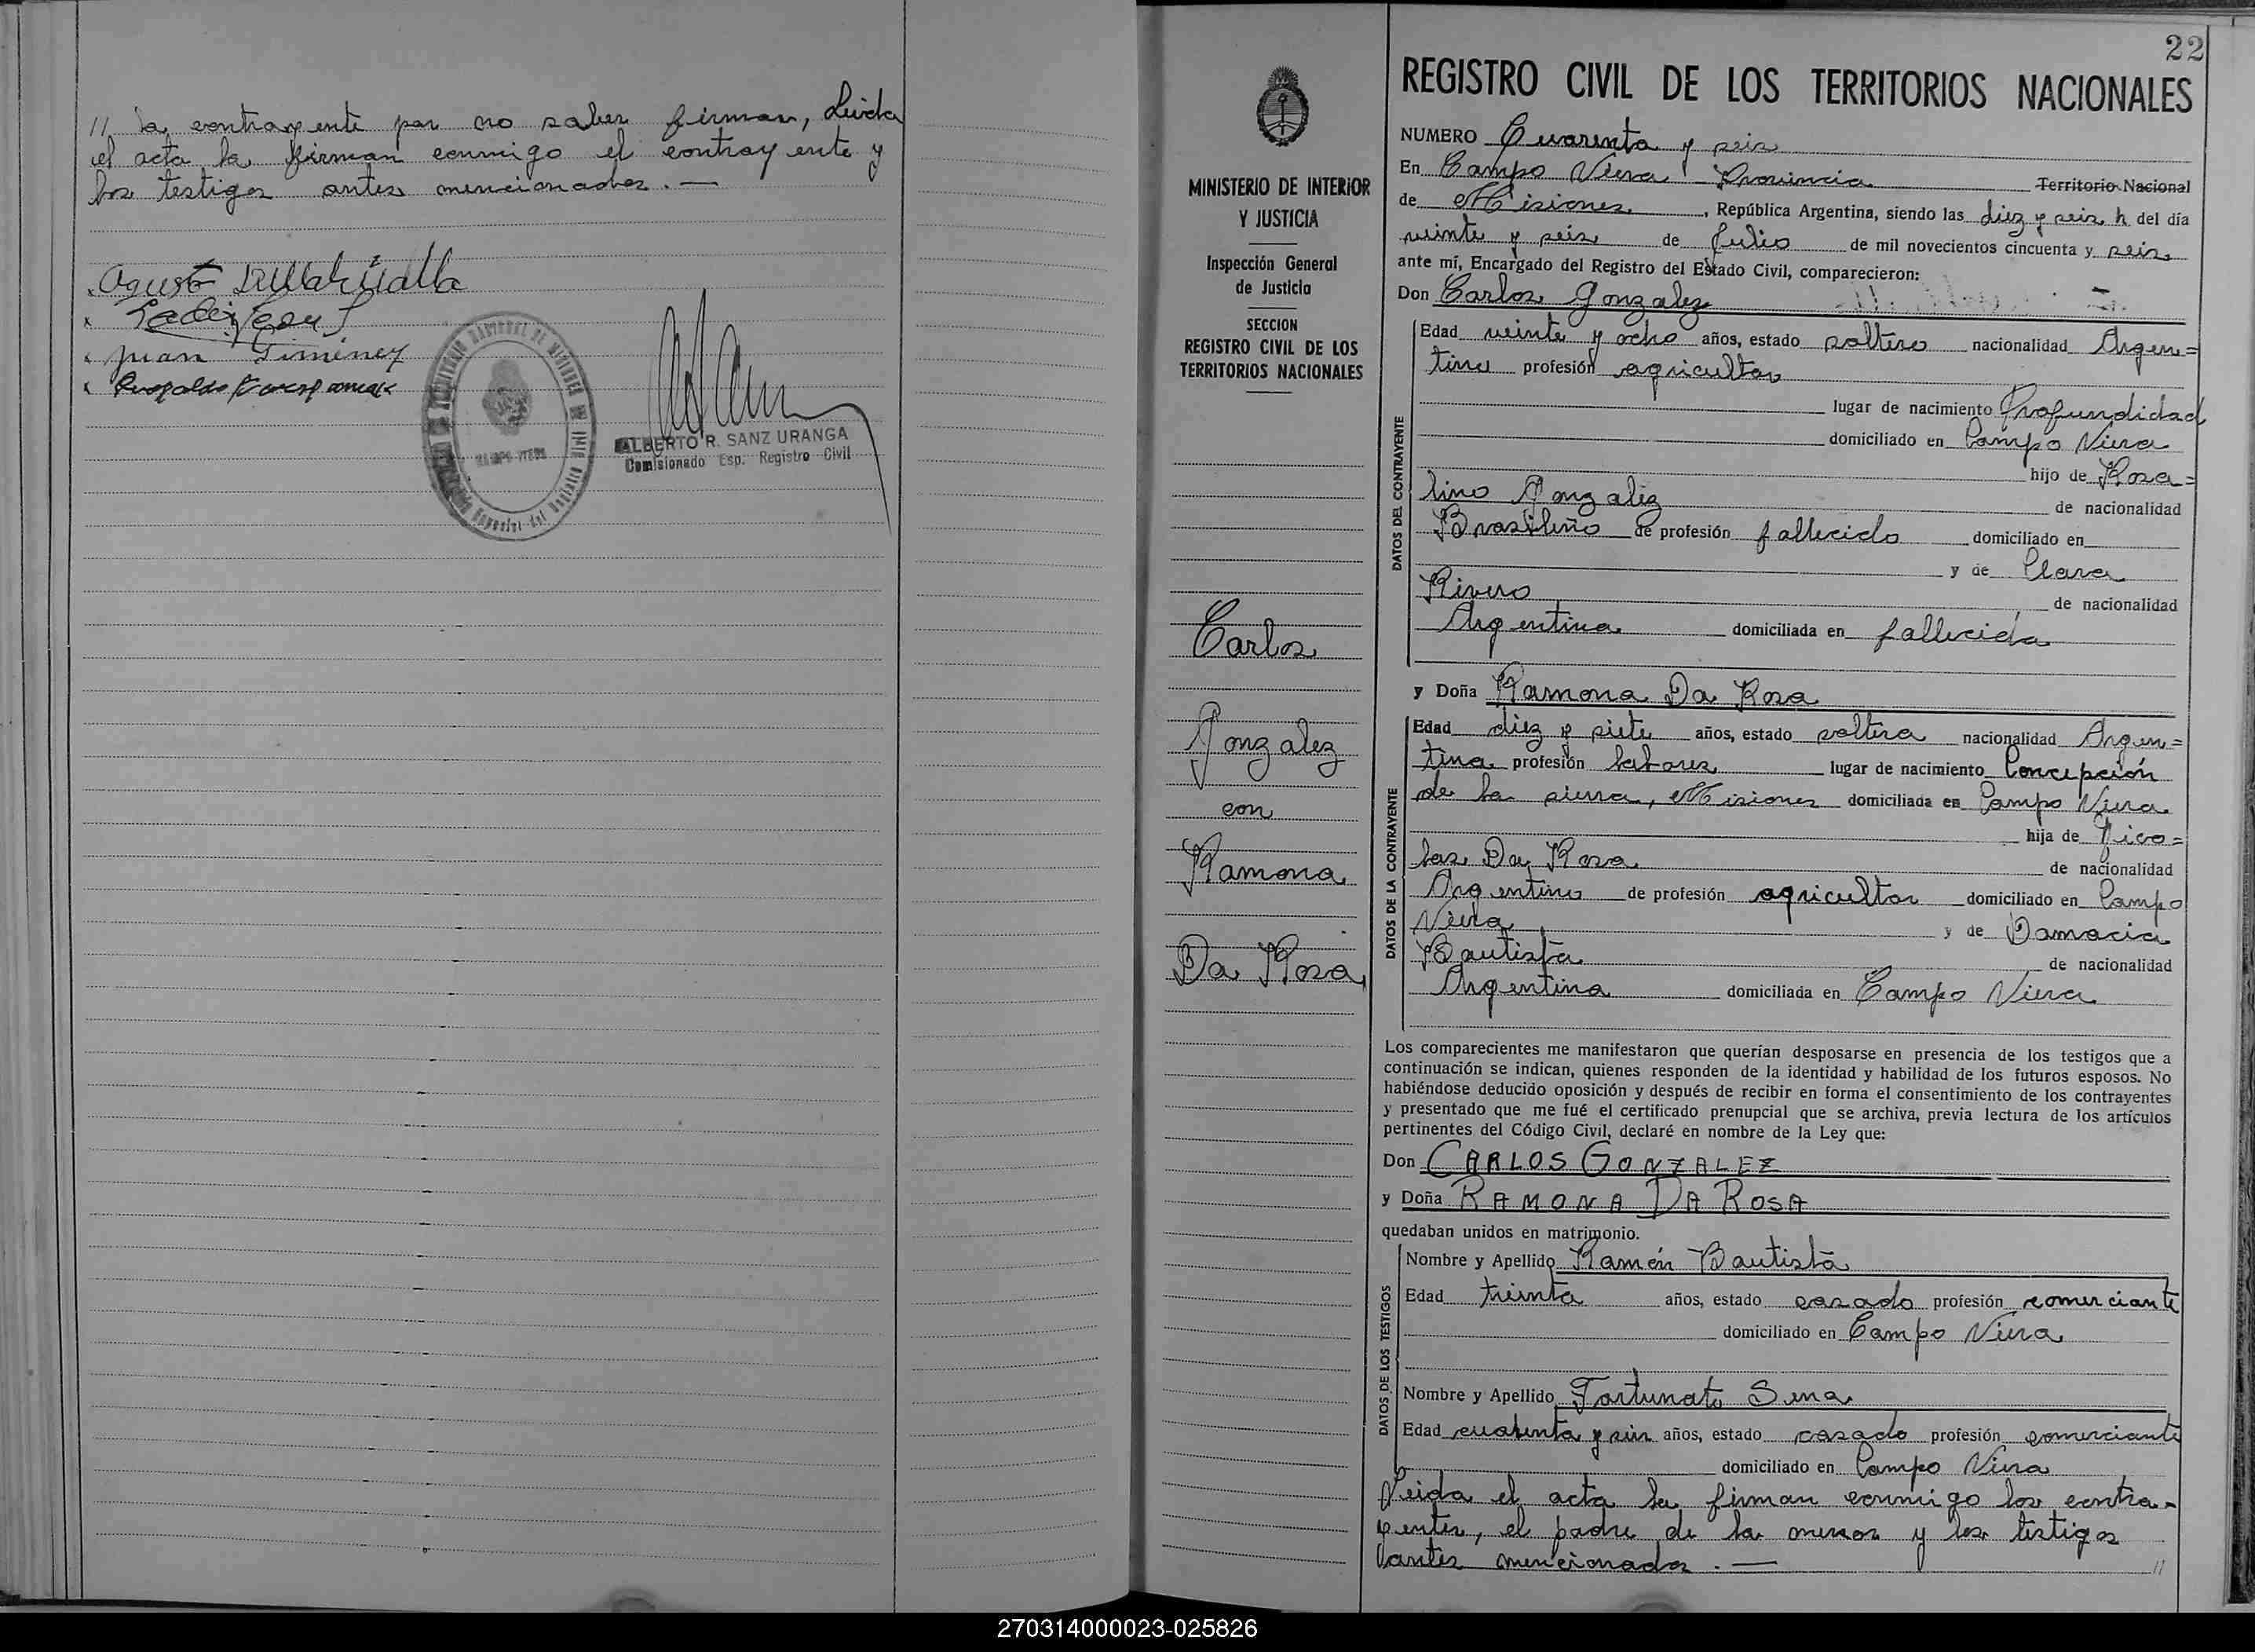 // la contrayente por no saber firmar, Leida
el acta la firman conmigo el contrayente y
los testigos antes mencionados. —
Juan Gimenez
ALBERTO R. SANZ URANGA
Comisionado Esp. Registro Civil
22
MINISTERIO DE INTERIOR
Y JUSTICIA
Inspección General
de Justicia
SECCION
REGISTRO CIVIL DE LOS
TERRITORIOS NACIONALES
Carlos
Gonzalez
con
Ramona
Da Rosa
REGISTRO CIVIL DE LOS TERRITORIOS NACIONALES
NUMERO Cuarenta y seis
En Campo Viera Provincia Territorio Nacional
de Misiones, República Argentina, siendo las diez y seis h del día
veinte y seis de Julio de mil novecientos cincuenta y seis
ante mí, Encargado del Registro del Estado Civil, comparecieron:
Don Carlos Gonzalez
DATOS DEL CONTRAYENTE
Edad veinte y ocho años, estado soltero nacionalidad Argen=
tino profesión agricultor
lugar de nacimiento Profundidad
domiciliado en Campo Viera
hijo de Rosa=
lino Gonzalez de nacionalidad
Brasileño de profesión fallecido domiciliado en
y de Clara
Rivero de nacionalidad
Argentina domiciliada en fallecida
y Doña Ramona Da Rosa
DATOS DE LA CONTRAYENTE
Edad diez y siete años, estado soltera nacionalidad Argen=
tina profesión labores lugar de nacimiento Concepción
de la sierra, Misiones domiciliada en Campo Viera
hija de Nico=
las Da Rosa de nacionalidad
Argentino de profesión agricultor domiciliado en Campo
Viera y de Damacia
Bautista de nacionalidad
Argentina domiciliada en Campo Viera
Los comparecientes me manifestaron que querían desposarse en presencia de los testigos que a
continuación se indican, quienes responden de la identidad y habilidad de los futuros esposos. No
habiéndose deducido oposición y después de recibir en forma el consentimiento de los contrayentes
y presentado que me fué el certificado prenupcial que se archiva, previa lectura de los artículos
pertinentes del Código Civil, declaré en nombre de la Ley que:
Don CARLOS GONZALEZ
y Doña RAMONA DA ROSA
quedaban unidos en matrimonio.
DATOS DE LOS TESTIGOS
Nombre y Apellido Ramón Bautista
Edad treinta años, estado casado profesión comerciante
domiciliado en Campo Viera
Nombre y Apellido Fortunato Sena
Edad cuarenta y seis años, estado casado profesión comerciante
domiciliado en Campo Viera
Leida el acta la firman conmigo los contra-
yentes, el padre de la menor y los testigos
antes mencionados. — //
270314000023-025826